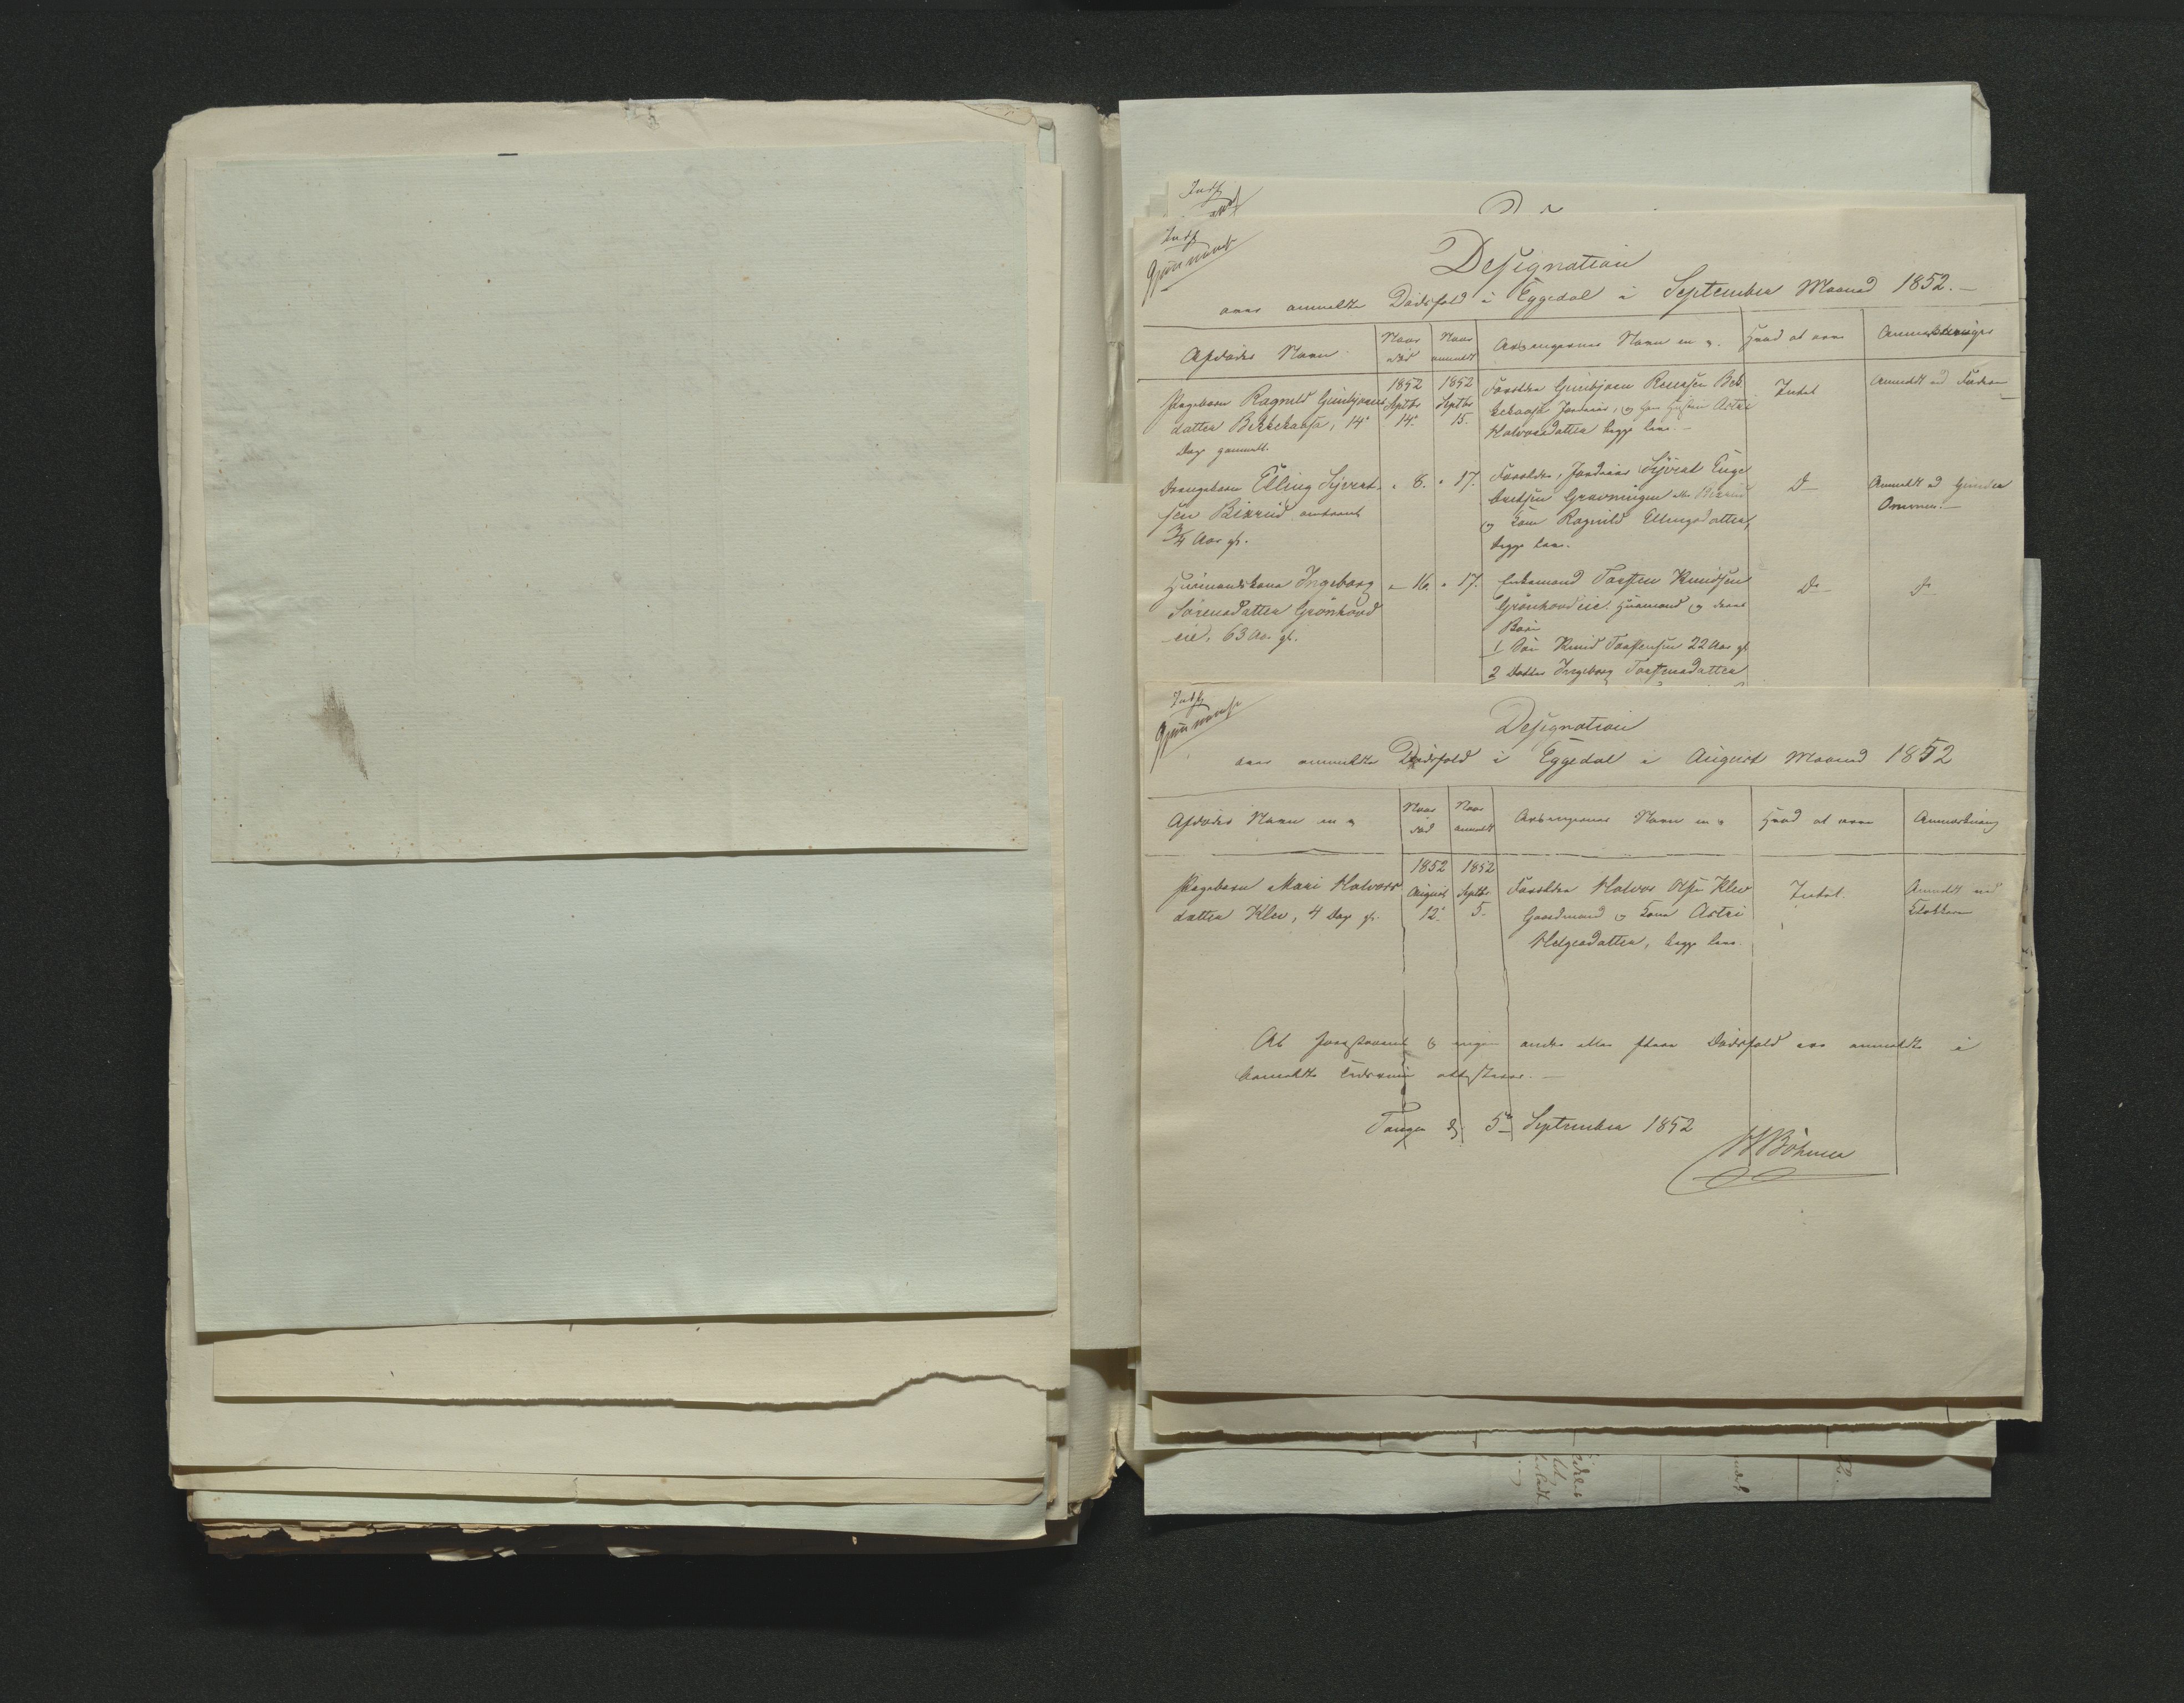 Indf
Indf
Gjennemset
Designation
over anmeldte Dødsfald i Eggedal i September Maaned 1852.
Afdødes Navn
Naar død
Naar anmeldt
Arvingernes Navn m. v.
Hvad at arve
Anmærkninger
1852
1852
Pigebarn Ragnild Gunbjørns
Septbr
Septbr
Forældre Gunbjørn
Intet
Anmeldt ved Faderen
datter Bekkekaasa, 14
14.
15.
og hans Hustru Astri
Dage gammelt.
Halvorsdatter begge leve.
Drengebarn Elling Syvert-
" 8.
" 17.
Forældre, Syvert Enge
Do
Anmeldt ved Gunder
sen Bixrud omtrent
bretsen Gravningen eller Bixrud
Ammen.
3/4 Aar gl.
og Kone Ragnild Ellingsdatter,
begge leve.
Huusmandskone Ingeborg
" 16.
" 17.
Enkemand Torsten Knudsen
Do
Do
Sørensdatter Grønhovd
Grønhovdeie. Huusmand og deres
eie, 63 Aar gl.
Børn
1 Søn Knud Torstensen 22 Aar gl
2 Datter Ingeborg Torstensdatter
Indf
Gjennemset
Designation
over anmeldte Dødsfald i Eggedal i August Maaned 1852
Afdødes Navn m v
Naar død
Naar anmeldt
Arvingernes Navn m v
Hvad at arve
Anmærkning
1852
1852
Pigebarn Mari Halvors
August
Septbr
Forældre Halvor Olsen Klev
Intet.
Anmeldt ved
datter Klev, 4 Dage gl.
12.
5.
Gaardmand og Kone Astri
Klokkeren
Helgesdatter, begge leve.
At foranstaaende og ingen andre eller flere Dødsfald ere anmeldte i
bemeldte Tidsrum attesteres.
Tangen d. 5 September 1852
HBöhmer